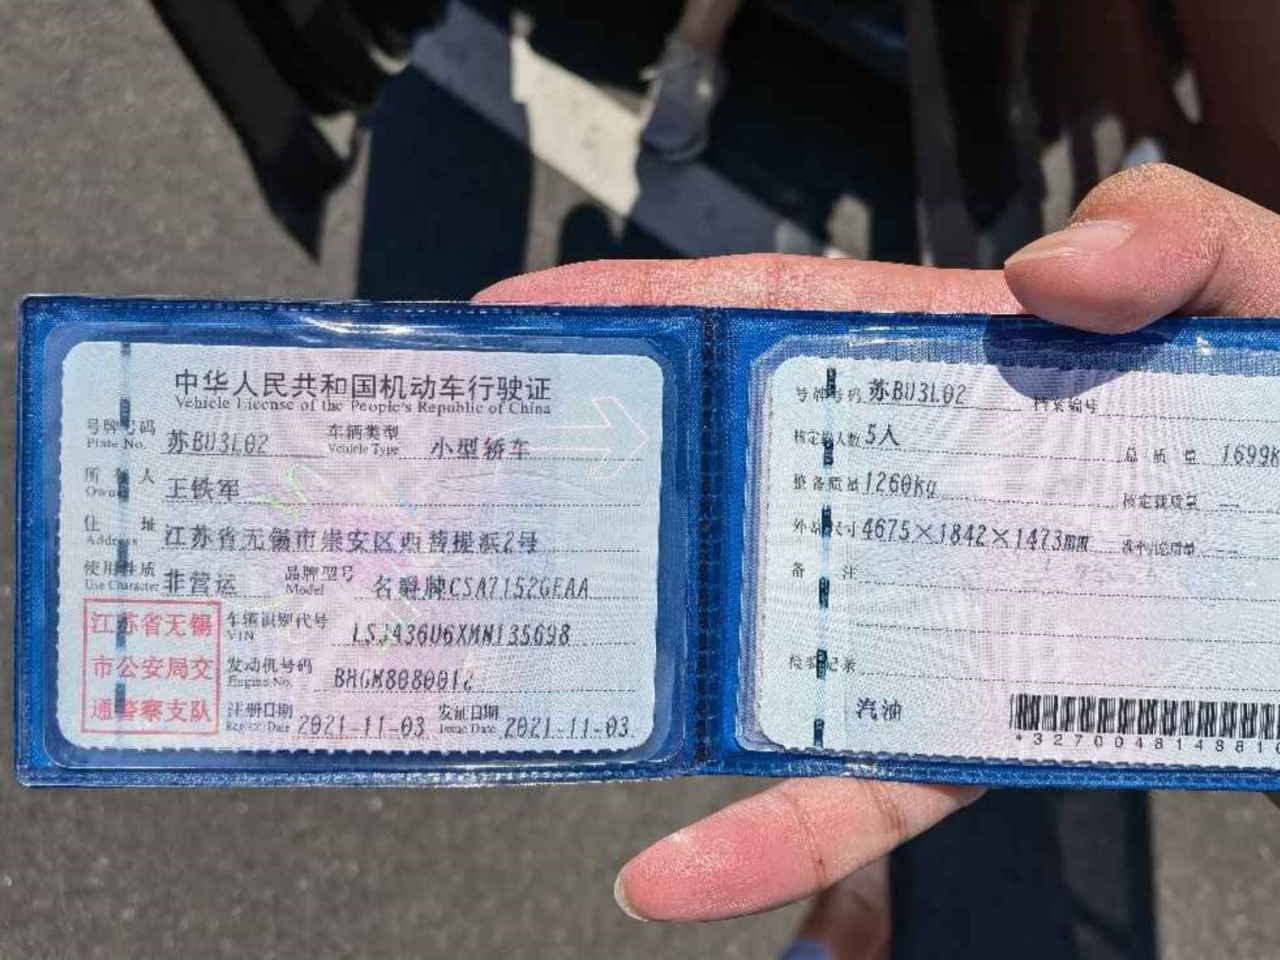 中华人民共和国机动车行驶证
Vehicle License of the People's Republic of China
号牌号码 苏BU3L02 车辆类型 小型轿车
Plate No. Vehicle Type
所有人 王铁军
Owner
住址 江苏省无锡市崇安区西菩提浜2号
Address
使用性质 非营运 品牌型号 名爵牌CSA7152GEAA
Use Character Model
江苏省无锡
市公安局交
通警察支队
车辆识别代号 LSJA36U6XMN135698
VIN
发动机号码
Engine No.
注册日期 2021-11-03 发证日期 2021-11-03
Register Date Issue Date
号牌号码 苏BU3L02 档案编号
核定载人数 5人 总质量
整备质量 1260kg 核定载质量 --
外廓尺寸 4675×1842×1473mm 准牵引总质量 --
备注
检验记录
汽油